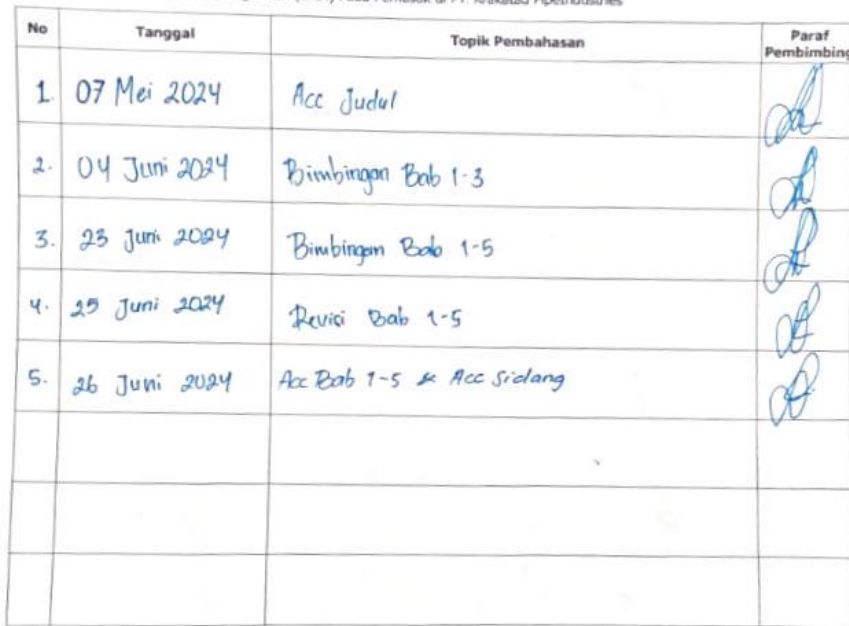 Pada Pemasok di PT. Krakatau Pipeindustries
No Tanggal Topik Pembahasan Paraf Pembimbing
1. 07 Mei 2024 Acc Judul
2. 04 Juni 2024 Bimbingan Bab 1-3
3. 23 Juni 2024 Bimbingan Bab 1-5
4. 25 Juni 2024 Revisi Bab 1-5
5. 26 Juni 2024 Acc Bab 1-5 & Acc Sidang